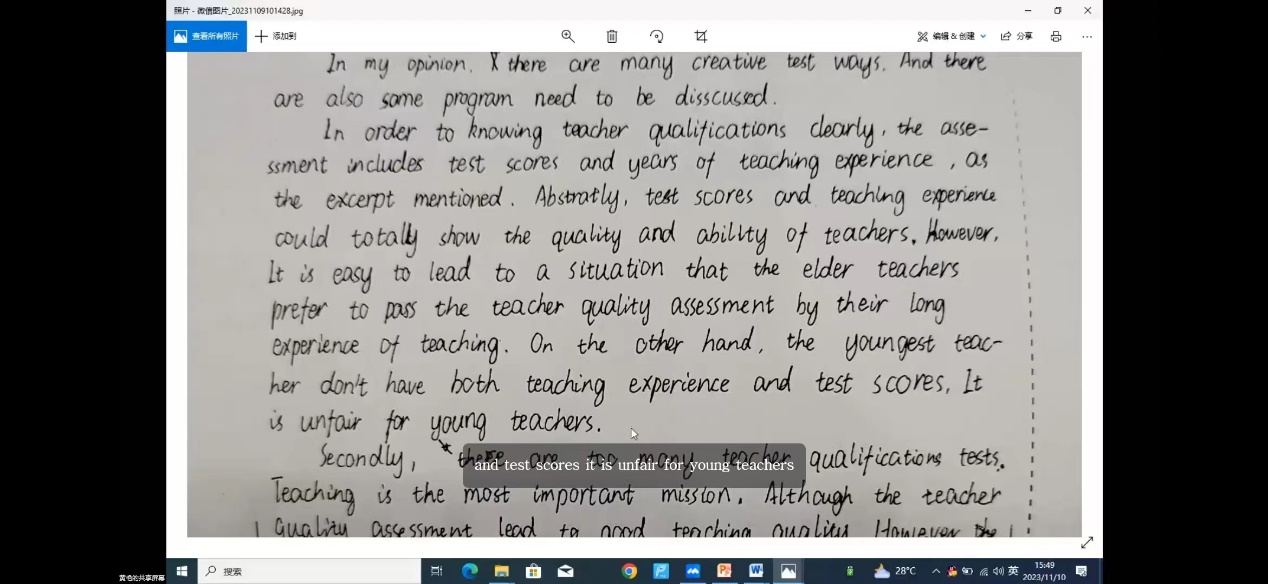 照片 - 微信图片_20231109101428.jpg
查看所有照片
添加到
编辑 & 创建
分享
In my opinion, there are many creative test ways. And there
are also some program need to be disscused.
In order to knowing teacher qualifications clearly, the asse-
ssment includes test scores and years of teaching experience, as
the excerpt mentioned. Abstratly, test scores and teaching experience
could totally show the quality and ability of teachers. However,
It is easy to lead to a situation that the elder teachers
prefer to pass the teacher quality assessment by their long
experience of teaching. On the other hand, the youngest teac-
her don't have both teaching experience and test scores, It
is unfair for young teachers.
Secondly, there are too many teacher qualifications tests.
and test scores it is unfair for young teachers
Teaching is the most important mission. Although the teacher
quality assessment lead to good teaching quality However the
黄老的共享屏幕
搜索
28°C
英
15:49
2023/11/10